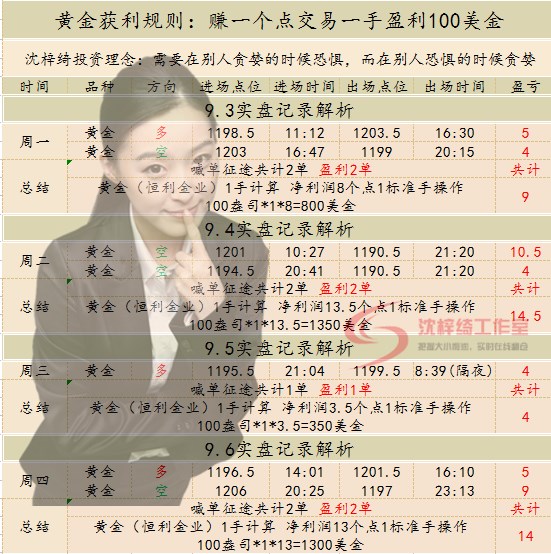 黄金获利规则：赚一个点交易一手盈利100美金
沈梓绮投资理念：需要在别人贪婪的时候恐惧，而在别人恐惧的时候贪婪
时间 品种 方向 进场点位 进场时间 出场点位 出场时间 盈亏
9.3实盘记录解析
周一 黄金 多 1198.5 11:12 1203.5 16:30 5
黄金 空 1203 16:47 1199 20:15 4
总结 喊单征途共计2单 盈利2单 共计
黄金（恒利金业）1手计算 净利润8个点1标准手操作
100盎司*1*8=800美金 9
9.4实盘记录解析
周二 黄金 空 1201 10:27 1190.5 21:20 10.5
黄金 空 1194.5 20:41 1190.5 21:20 4
总结 喊单征途共计2单 盈利2单 共计
黄金（恒利金业）1手计算 净利润13.5个点1标准手操作
100盎司*1*13.5=1350美金 14.5
沈梓绮工作室
9.5实盘记录解析
周三 黄金 多 1195.5 21:04 1199.5 8:39(隔夜) 4
总结 喊单征途共计1单 盈利1单 共计
黄金（恒利金业）1手计算 净利润3.5个点1标准手操作
100盎司*1*3.5=350美金 4
9.6实盘记录解析
周四 黄金 多 1196.5 14:01 1201.5 16:10 5
黄金 空 1206 20:25 1197 23:13 9
总结 喊单征途共计2单 盈利2单 共计
黄金（恒利金业）1手计算 净利润13个点1标准手操作
100盎司*1*13=1300美金 14